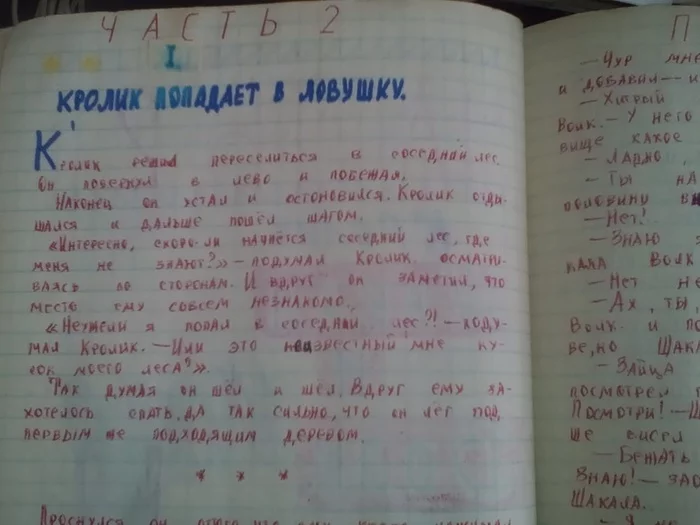 ЧАСТЬ 2
I
КРОЛИК ПОПАДАЕТ В ЛОВУШКУ.
Кролик решил переселиться в соседний лес.
Он повернул в лево и побежал.
Наконец он устал и остоновился. Кролик отды-
шался и дальше пошёл шагом.
«Интересно, скоро-ли начнётся соседний лес, где
меня не знают?» — подумал Кролик. осматри-
ваясь по сторонам. И вдруг он заметил, что
место ему совсем незнакомо.
«Неужели я попал в соседний лес?! — поду-
мал Кролик. — Или это неизвестный мне ку-
сок моего леса?».
Так думая он шёл и шёл. Вдруг ему за-
хотелось спать, да так сильно, что он лёг под
первым же подходящим деревом.
* * *
Проснулся он
П
— Чур мне
и добавил —
— Хитрый
Волк. — У него
вище какое
— Ладно,
— Ты на
половину
— Нет!
— Знаю
Волк
— Нет не
— Ах, ты,
Волк. и по
ве, но Шака
— Зайца
посмотрел
Посмотри! — Ш
ше висел
— Бежать
Знаю! — зао
Шакала.